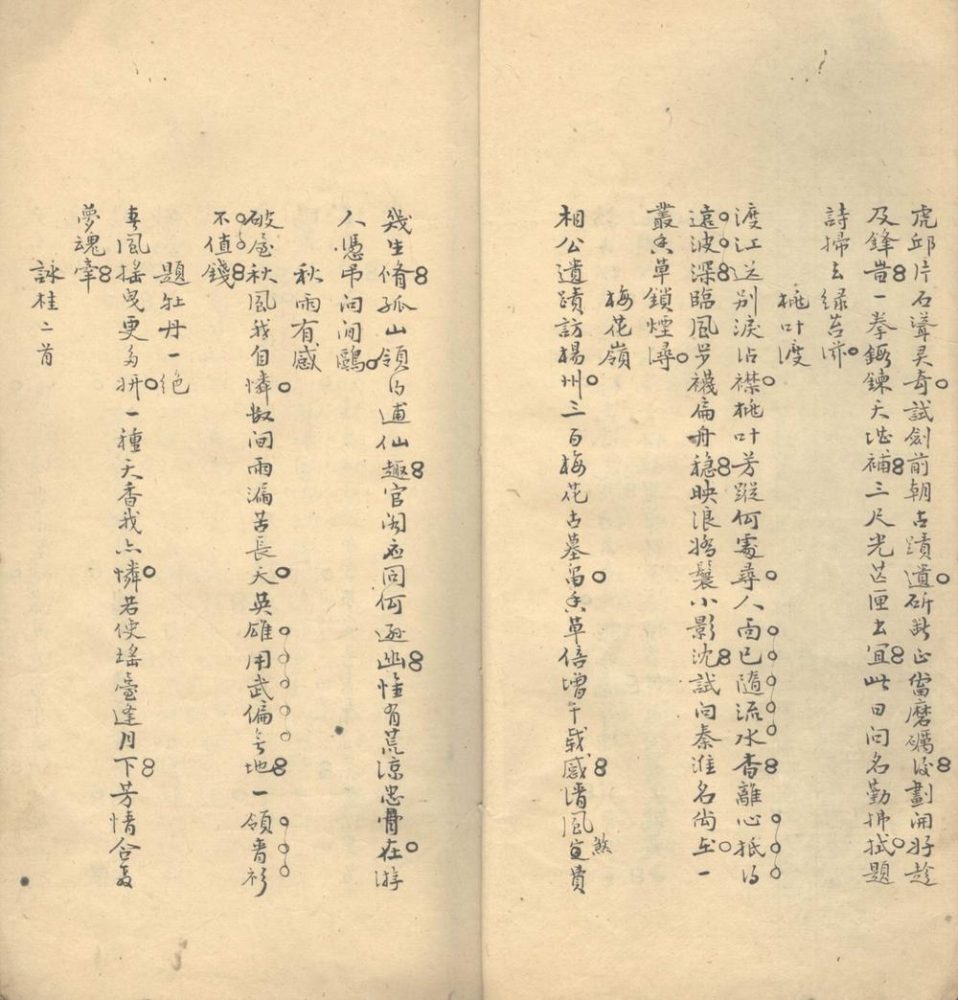 虎邱片石聳灵奇試劍前朝古蹟遺斫斷正當磨礪後劃開好趁
及鋒昔一拳鍜鍊天堪補三尺光芒匣去宜此日问名勤拂拭題
詩掃去緑苔滋
桃叶渡
渡江送别淚沾襟桃叶芳蹤何處尋人面已隨流水杳離心抵得
遠波深臨風罗襪扁舟穏映浪娇鬟小影沈試问秦淮名尚在一
叢香草鎖煙潯
梅花嶺
相公遺蹟訪楊州三百梅花古墓留香草倍增千载感清風宜貫
煞
幾生脩孤山領得逋仙趣官阁应同何遜幽惟有荒凉忠骨在游
人憑弔问间鷗
秋雨有感
破屋秋風我自憐数间雨漏苦長天英雄用武偏無地一領青衫
不值錢
題牡丹一绝
春風摇曳更多妍一種天香我亦憐若使瑤臺逢月下芳情合爲
夢魂牽
詠桂二首